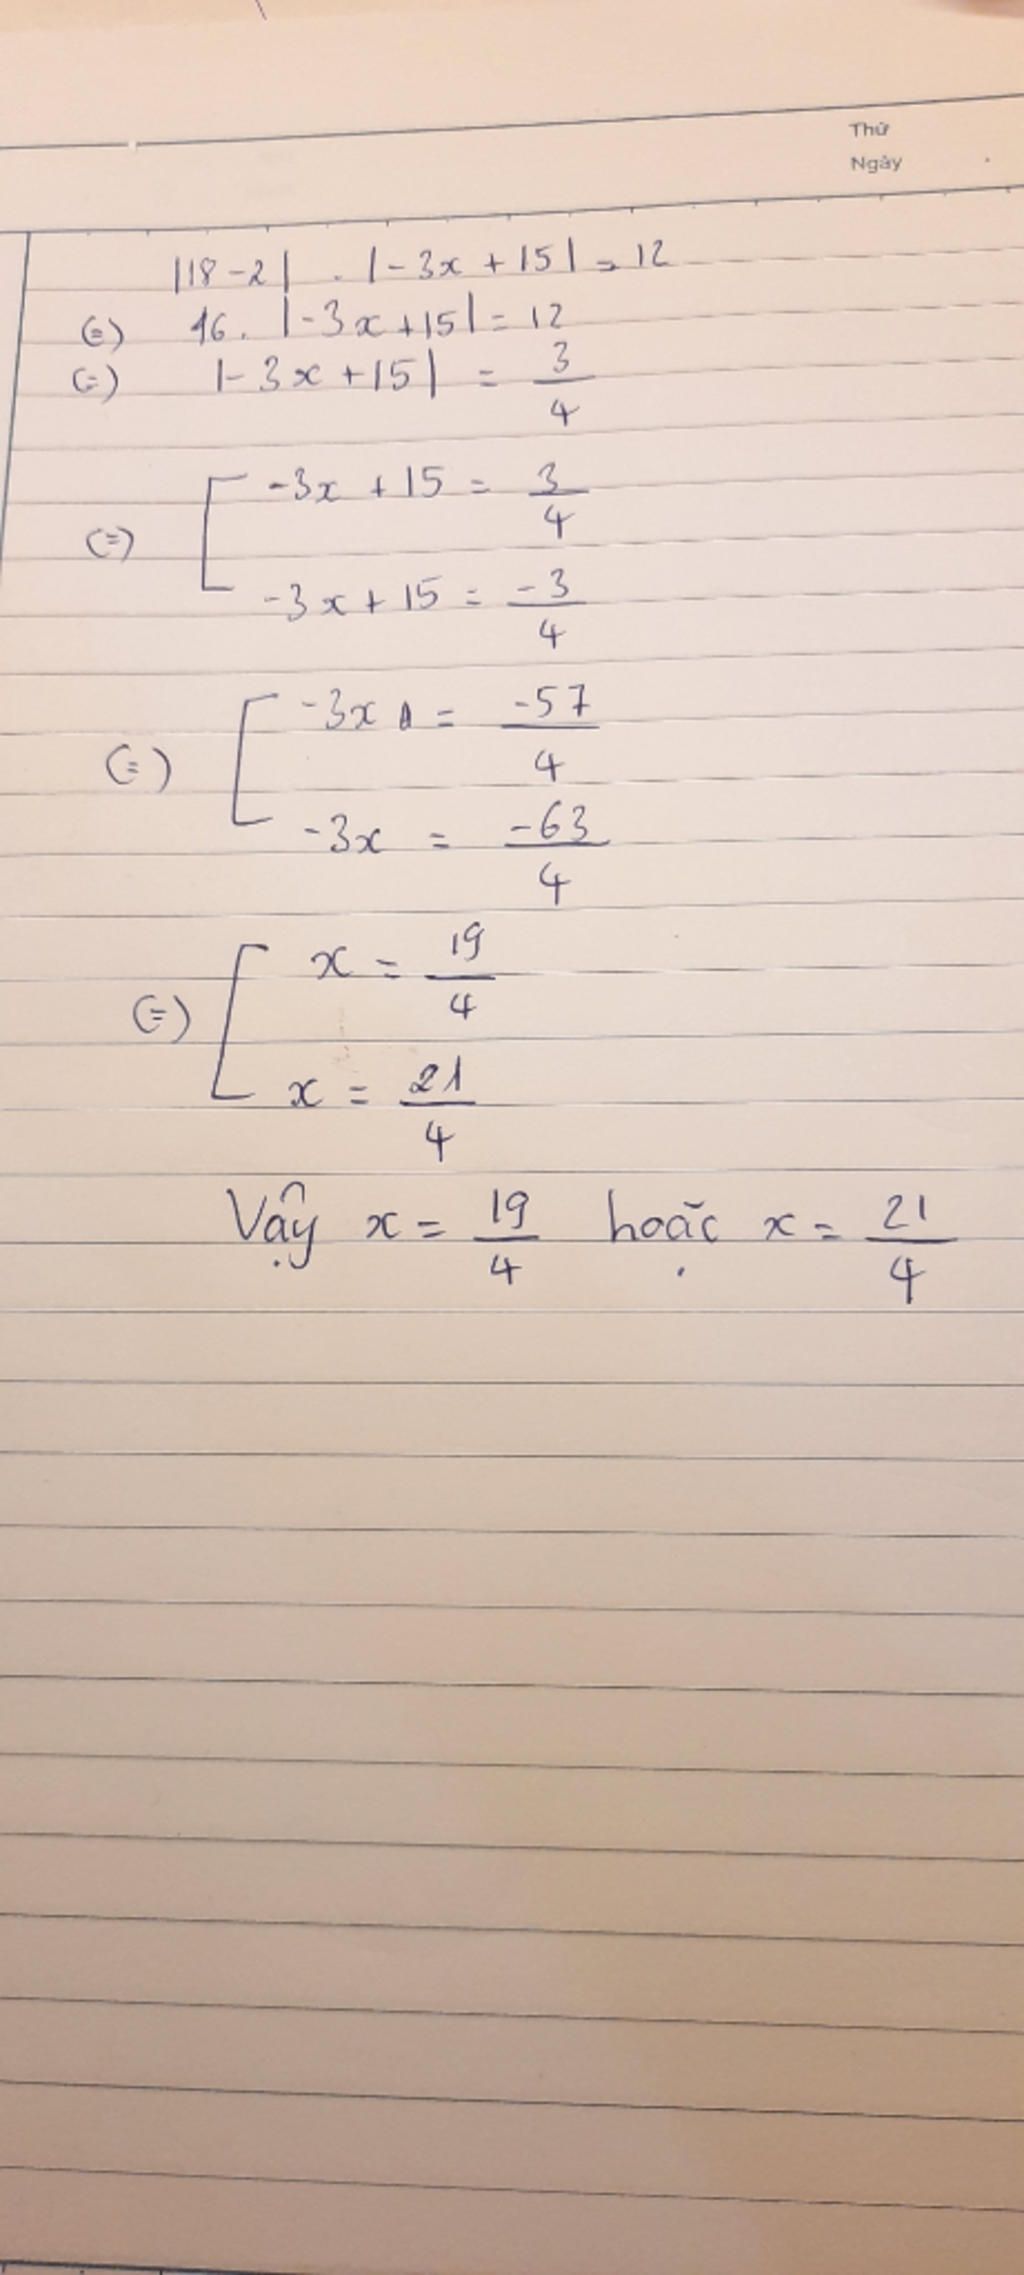 Thứ
Ngày
|18-2| . |-3x+15| = 12
(=) 16. |-3x+15| = 12
(=) |-3x+15| = 3/4
(=) [ -3x+15 = 3/4
-3x+15 = -3/4
(=) [ -3x = -57/4
-3x = -63/4
(=) [ x = 19/4
x = 21/4
Vậy x = 19/4 hoặc x = 21/4